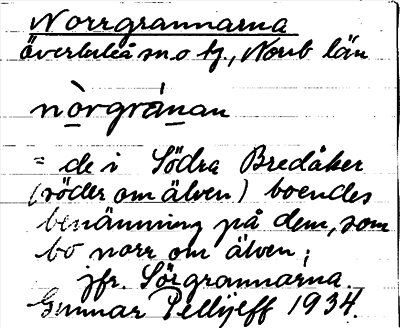 Norrgrannarna
Överluleå sn o tg, Norrb län
nòrgránan
= de i Södra Bredåker
(söder om älven) boendes
benämning på dem, som
bo norr om älven;
jfr. Sörgrannarna.
Gunnar Pellijeff 1934.